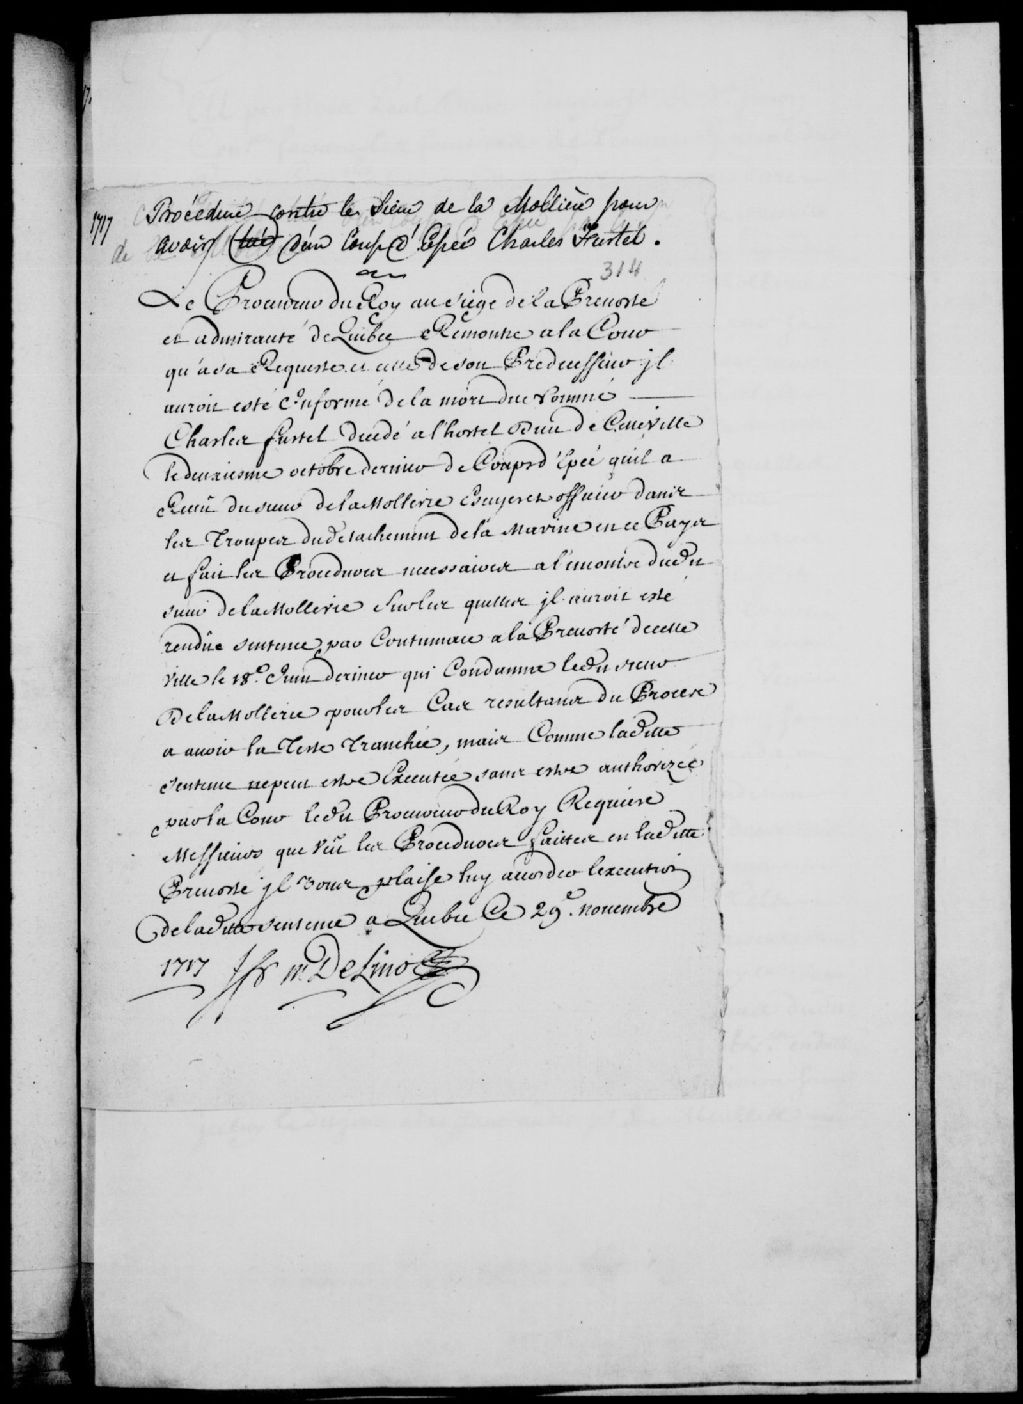 1717 Procédure contre le Sieur de la Mollerie pour
avoir tué d'un Coup d'Epée Charles Fustel.
314
Le Procureur du Roy au siege de la Prevosté
et admirauté de Quebec Remontre a la Cour
qu'a sa Requeste et celle de son Predecesseur jl
auroit esté Informé de la mort du nommé
Charles fustel decedé a l'hostel Dieu de Cette Ville
le deuxiesme octobre dernier de Coups d'Epée quil a
Receu du sieur de la Mollerie Escuyer et officier dans
les Trouppes du detachement de la Marine en ce Pays
et fait les Procedures necessaires a l'encontre dudit
sieur de la Mollerie sur les quelles jl auroit esté
rendüe sentence par Contumace a la Prevosté de cette
Ville le 18e. Juin dernier qui Condamne ledit sieur
De la Mollerie pour les Cas resultans du Proces
a avoir la Teste Tranchée, mais Comme ladite
sentence ne peut estre Executée sans estre authorizée
par la Cour ledit Procureur du Roy Requiere
Messieurs que Veü les Procedures faittes en ladite
Prevosté jl Vous plaise luy accorder lexecution
de ladite sentence a Quebec Ce 29e. novembre
1717 m. De Lino